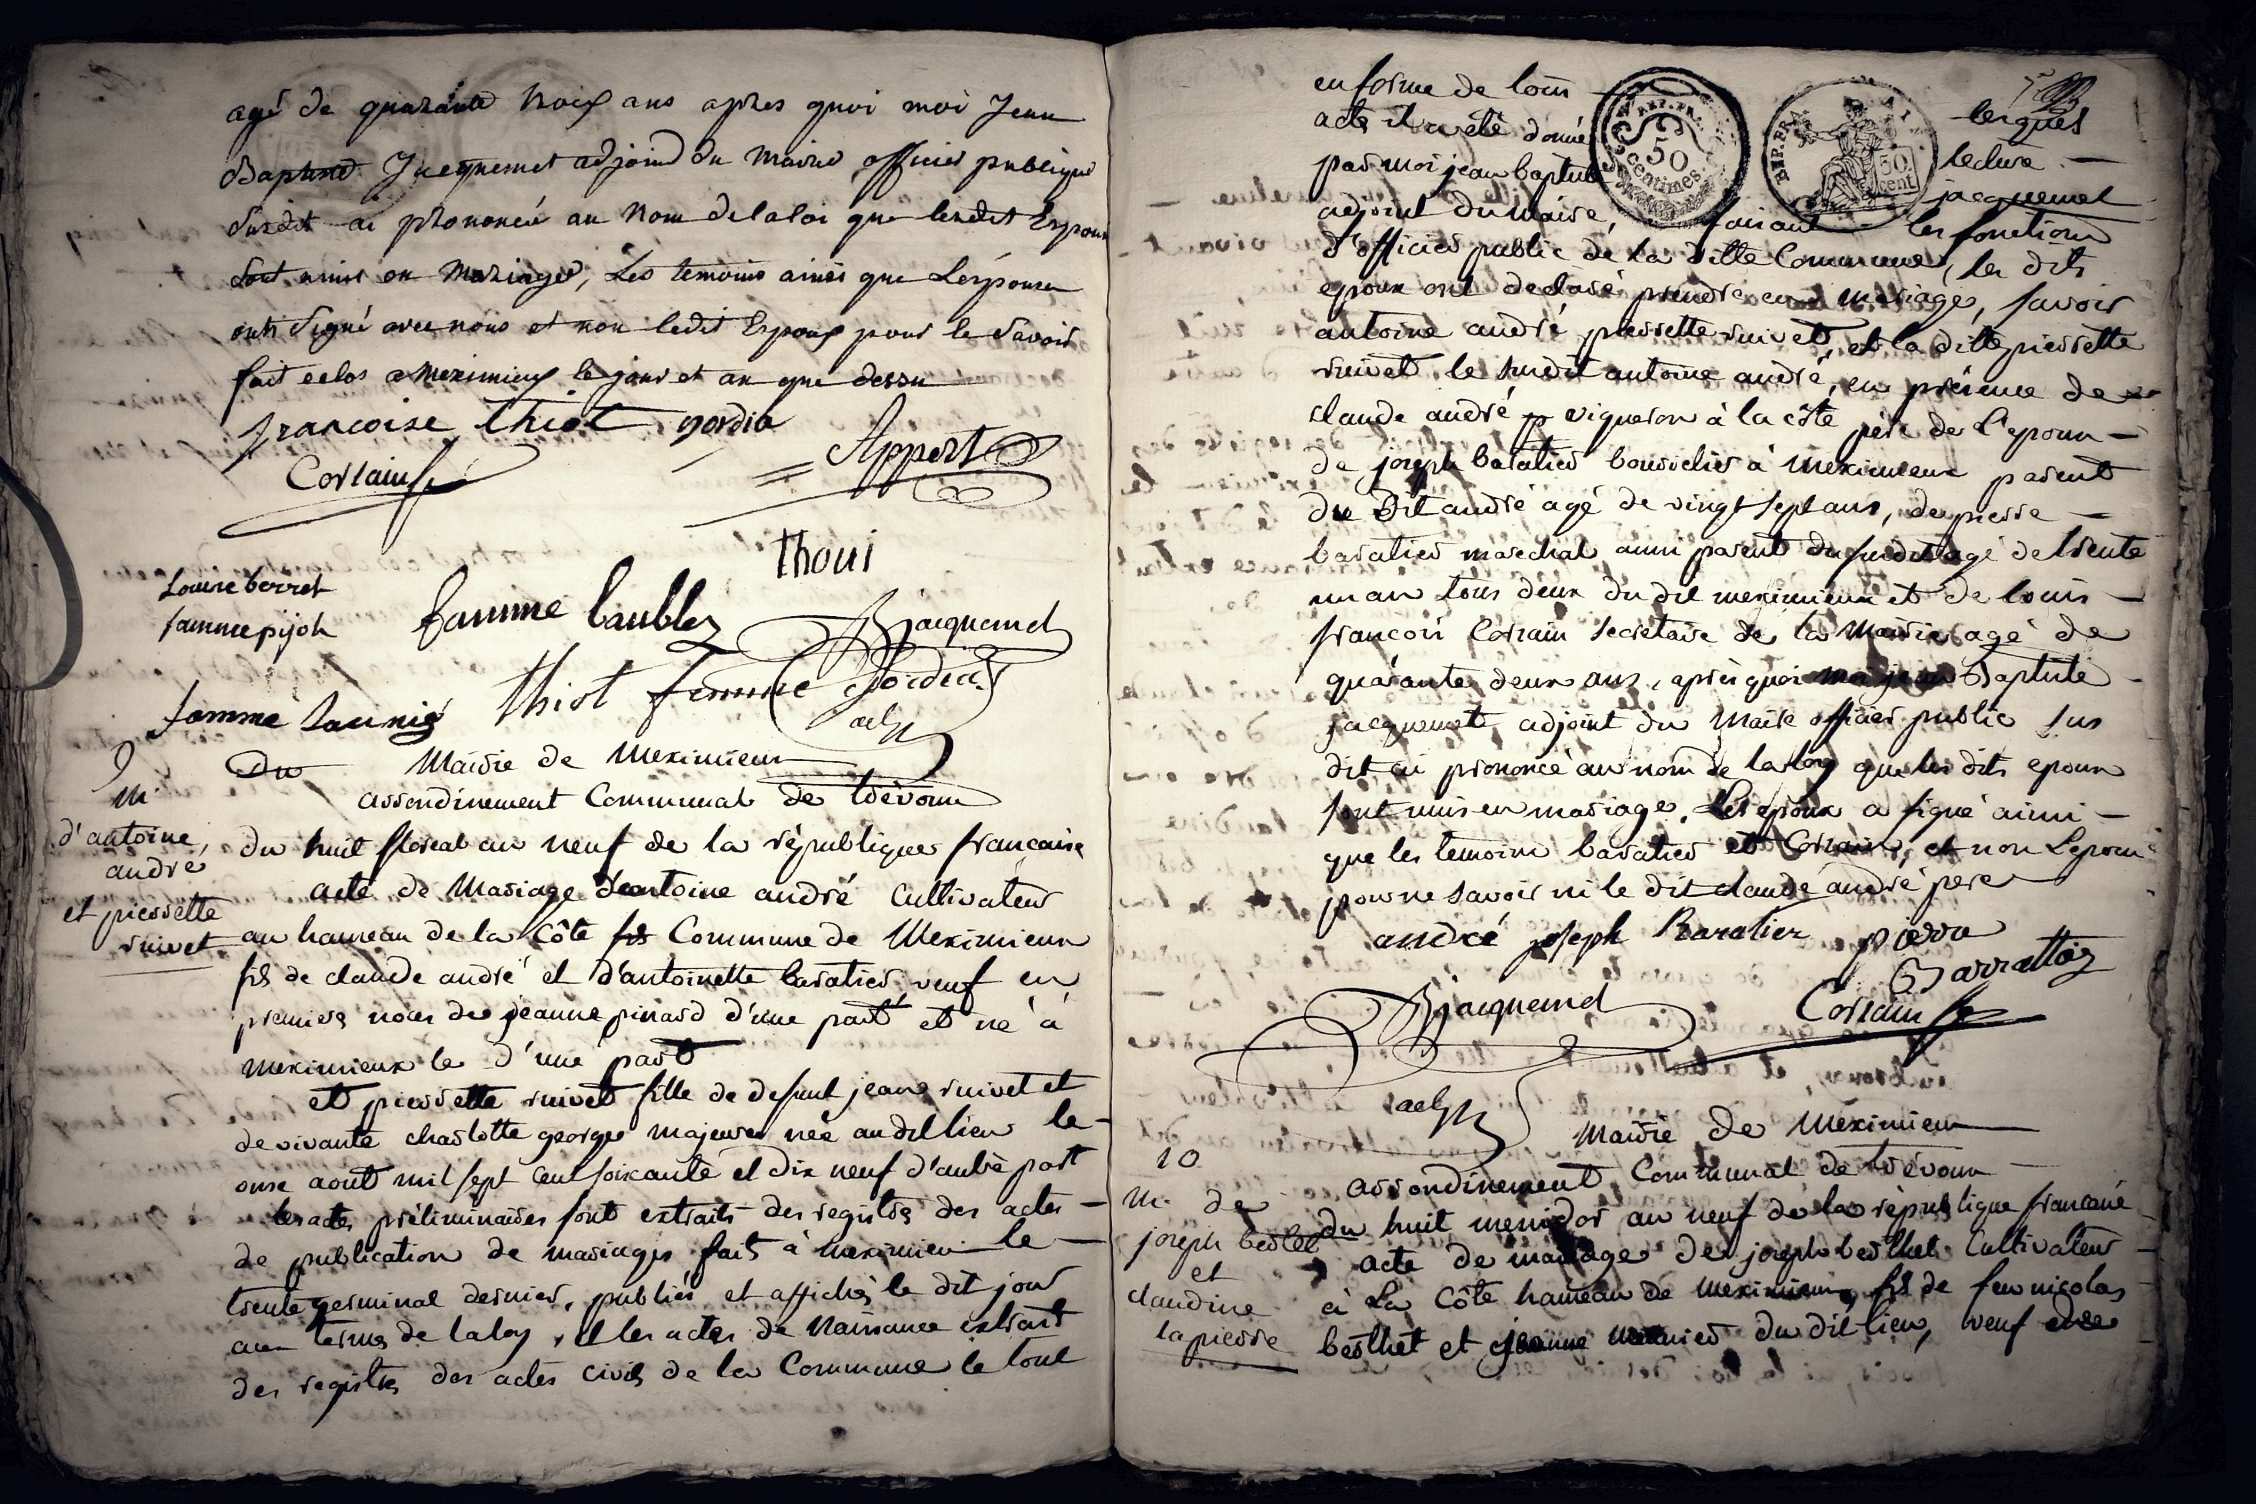 agé de quarante trois ans apres quoi moi Jean
Baptiste Jacquemet adjoind du Maire officier publique
Susdit ai prononcé au Nom de la loi que lesdit Espoux
Sont unies en Mariage, Les temoins ainsi que Lespouse
onts Signé avec nous et non ledit Espoux pour le Savoir
fait eclos a Meximieux le jour et an que dessu
francoise thiot nordia
Appert
Corsain
thoui
Louise berret
famme pijoh
famme baublez
Bjacquemet
thiot femme Nordia
adj
famme Saunié
9
m.
d'antoine
andré
et pierrette
ruivet
Du Mairie de Meximieux
arrondinement Communal de trévoux
du huit floreal an neuf de la république française
acte de Mariage d'antoine andré Cultivateur
au hameau de la Côte fils Commune de Meximieux
fils de claude andré et d'antoinette baratier, veuf en
premiers noces de jeanne pinard d'une part et né à
meximieux le d'une part
et pierrette ruivet fille de defunt jean ruivet et
de vivante charlotte george majeure née audit lieu le
onse août mil sept cent soixante et dix neuf d'autre part
les actes préliminaires sont extraits des registres des actes
de publication de mariages faits à meximieux le
trente germinal dernier, publiés et affichés le dit jour
aux termes de la loy, et les actes de Naissance extrait
des registres des actes civils de la Commune le tout
en forme de tous lesques
acte il a été donné lecture
par moi jean baptiste jacquemet
adjoint du maire, faisant les fonctions
d'officier public de la ditte Commune, les dits
epoux ont declaré prendre en mariage, savoir
antoine andré pierrette ruivet, et la ditte pierrette
ruivet, le susdit antoine andré, en présence de
claude andré vigneron à la côte père de l'epoux
de joseph baratier bourrelier à meximieux parent
du dit andré agé de vingt sept ans, de pierre
baratier marechal aussi parent du susdit agé de trente
un an tous deux du dit meximieux et de louis
françois Corsain secretaire de la Mairie agé de
quarante deux ans, après quoi moi jean Baptiste
jacquemet, adjoint du Maire officier public sus
dit ai prononcé au nom de la loy que les dits epoux
sont unis en mariage. Les epoux a signé ainsi
que les temoins baratier et Corsain, et non Lepou
pour ne savoir ni le dit claude andré pere
andré joseph Baratier pierre
Barrattier
Bjacquemet Corsain
adj
10
m. de
joseph berthet
et
claudine
lapierre
Mairie de Meximieux
arrondinement Communal de trévoux
du huit messidor an neuf de la république française
acte de mariage de joseph berthet Cultivateur
à La Côte hameau de meximieux, fils de feu nicolas
berthet et jeanne du dit lieu, veuf de
REP.FRA.
50
centimes.
REP.FRA.
50.
cent